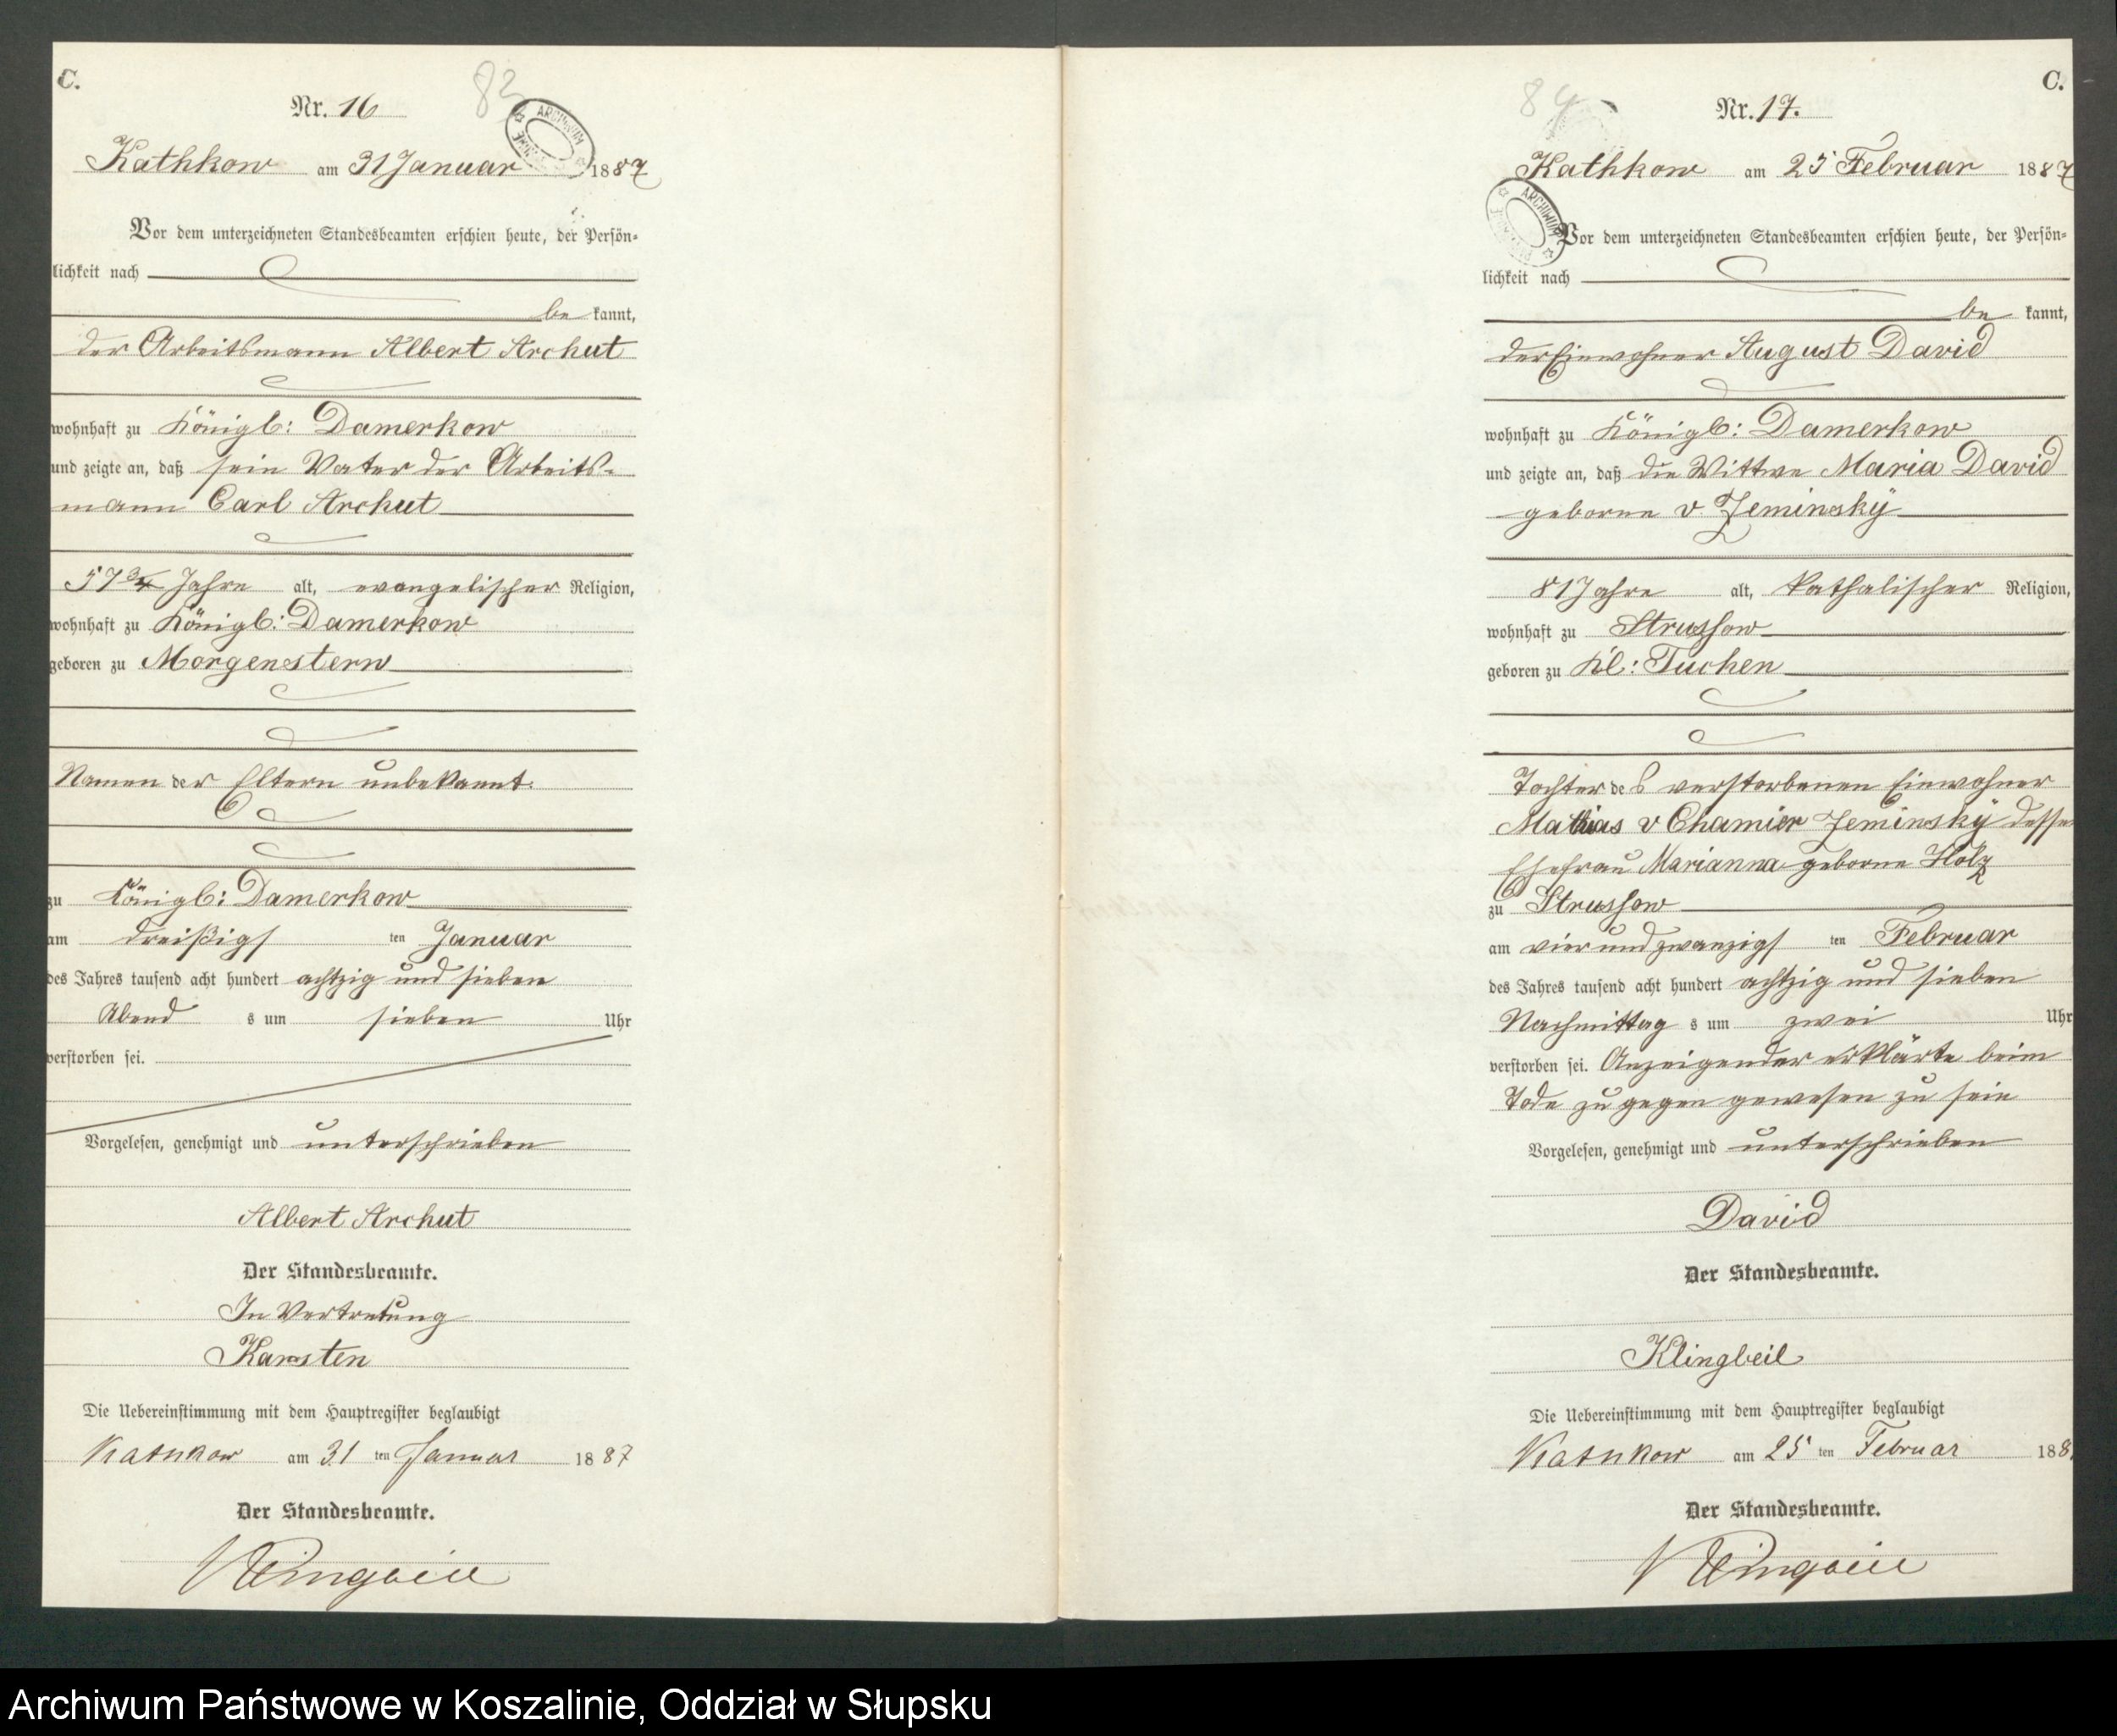 C.
Nr. 16
83
ARCHIWUM
Kathkow am 31 Januar 1887
Vor dem unterzeichneten Standesbeamten erschien heute, der Persön-
lichkeit nach
be kannt,
der Arbeitsmann Albert Archut
wohnhaft zu Königl: Damerkow
und zeigte an, daß sein Vater der Arbeits-
mann Carl Archut
57 3/4 Jahre alt, evangelischer Religion,
wohnhaft zu Königl: Damerkow
geboren zu Morgenstern
Namen der Eltern unbekannt.
zu Königl: Damerkow
am dreißigs ten Januar
des Jahres tausend acht hundert achtzig und sieben
Abend s um sieben Uhr
verstorben sei.
Vorgelesen, genehmigt und unterschrieben
Albert Archut
Der Standesbeamte.
In Vertretung
Karsten
Die Uebereinstimmung mit dem Hauptregister beglaubigt
Kathkow am 31 ten Januar 1887
Der Standesbeamte.
Klingbeil
C.
84
Nr. 17.
Kathkow am 25 Februar 1887
ARCHIWUM
Vor dem unterzeichneten Standesbeamten erschien heute, der Persön-
lichkeit nach
be kannt,
der Einwohner August David
wohnhaft zu Königl: Damerkow
und zeigte an, daß die Wittwe Maria David
geborne v. Zeminsky
81 Jahre alt, kathalischer Religion,
wohnhaft zu Strussow
geboren zu Kl: Tuchen
Tochter des verstorbenen Einwohner
Mathias v Chamier Zeminsky desse
Ehefrau Marianna geborne Holz
zu Strussow
am vier und zwanzigs ten Februar
des Jahres tausend acht hundert achtzig und sieben
Nachmittag s um zwei Uhr
verstorben sei. Anzeigender erklärte beim
Tode zu gegen gewesen zu sein
Vorgelesen, genehmigt und unterschrieben
David
Der Standesbeamte.
Klingbeil
Die Uebereinstimmung mit dem Hauptregister beglaubigt
Kathkow am 25 ten Februar 188
Der Standesbeamte.
Klingbeil
Archiwum Państwowe w Koszalinie, Oddział w Słupsku